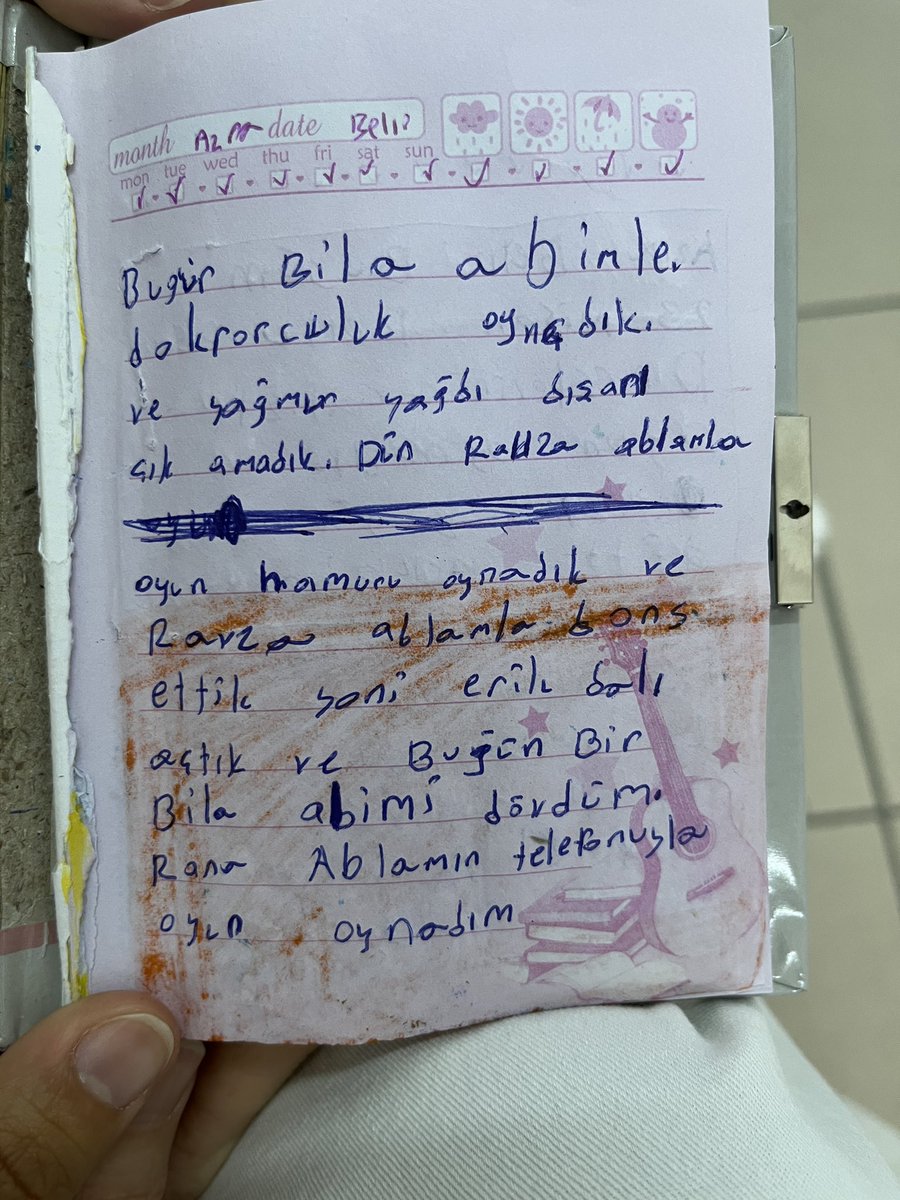 month Azra date Belli
mon tue wed thu fri sat sun
Bugün Bila abimle.
dokrorculuk oynadık.
ve yağmur yağdı dışarı
çık amadık. Dün Ravza ablamla
oyun hamuru oynadık ve
Ravza ablamla dons
ettik yani erik dalı
açtık ve Bugün Bir
Bila abimi dövdüm.
Rana Ablamın telefonuyla
oyun oynadım